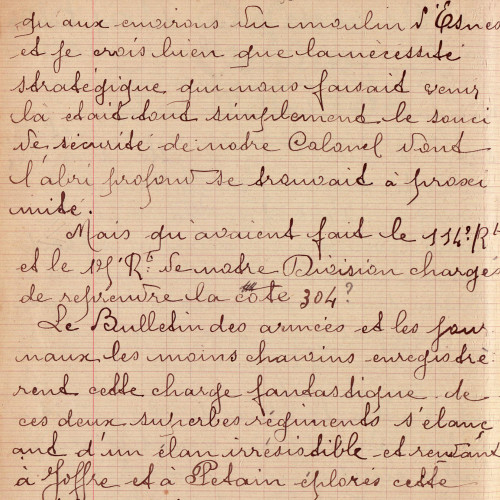 qu'aux environs du moulin d'Esnes
et je crois bien que la nécessité
stratégique qui nous faisait venir
là était tout simplement le souci
de sécurité de notre Colonel dont
l'abri profond se trouvait à proxi
mité.
Mais qu'avaient fait le 114e Rt
et le 125e Rt de notre Division chargés
de reprendre la côte 304?
Le Bulletin des armées et les jour
naux les moins chauvins enregistrè
rent cette charge fantastique de
ces deux superbes régiments s'élanç
ant d'un élan irrésistible et rendant
à Joffre et à Pétain éplorés cette